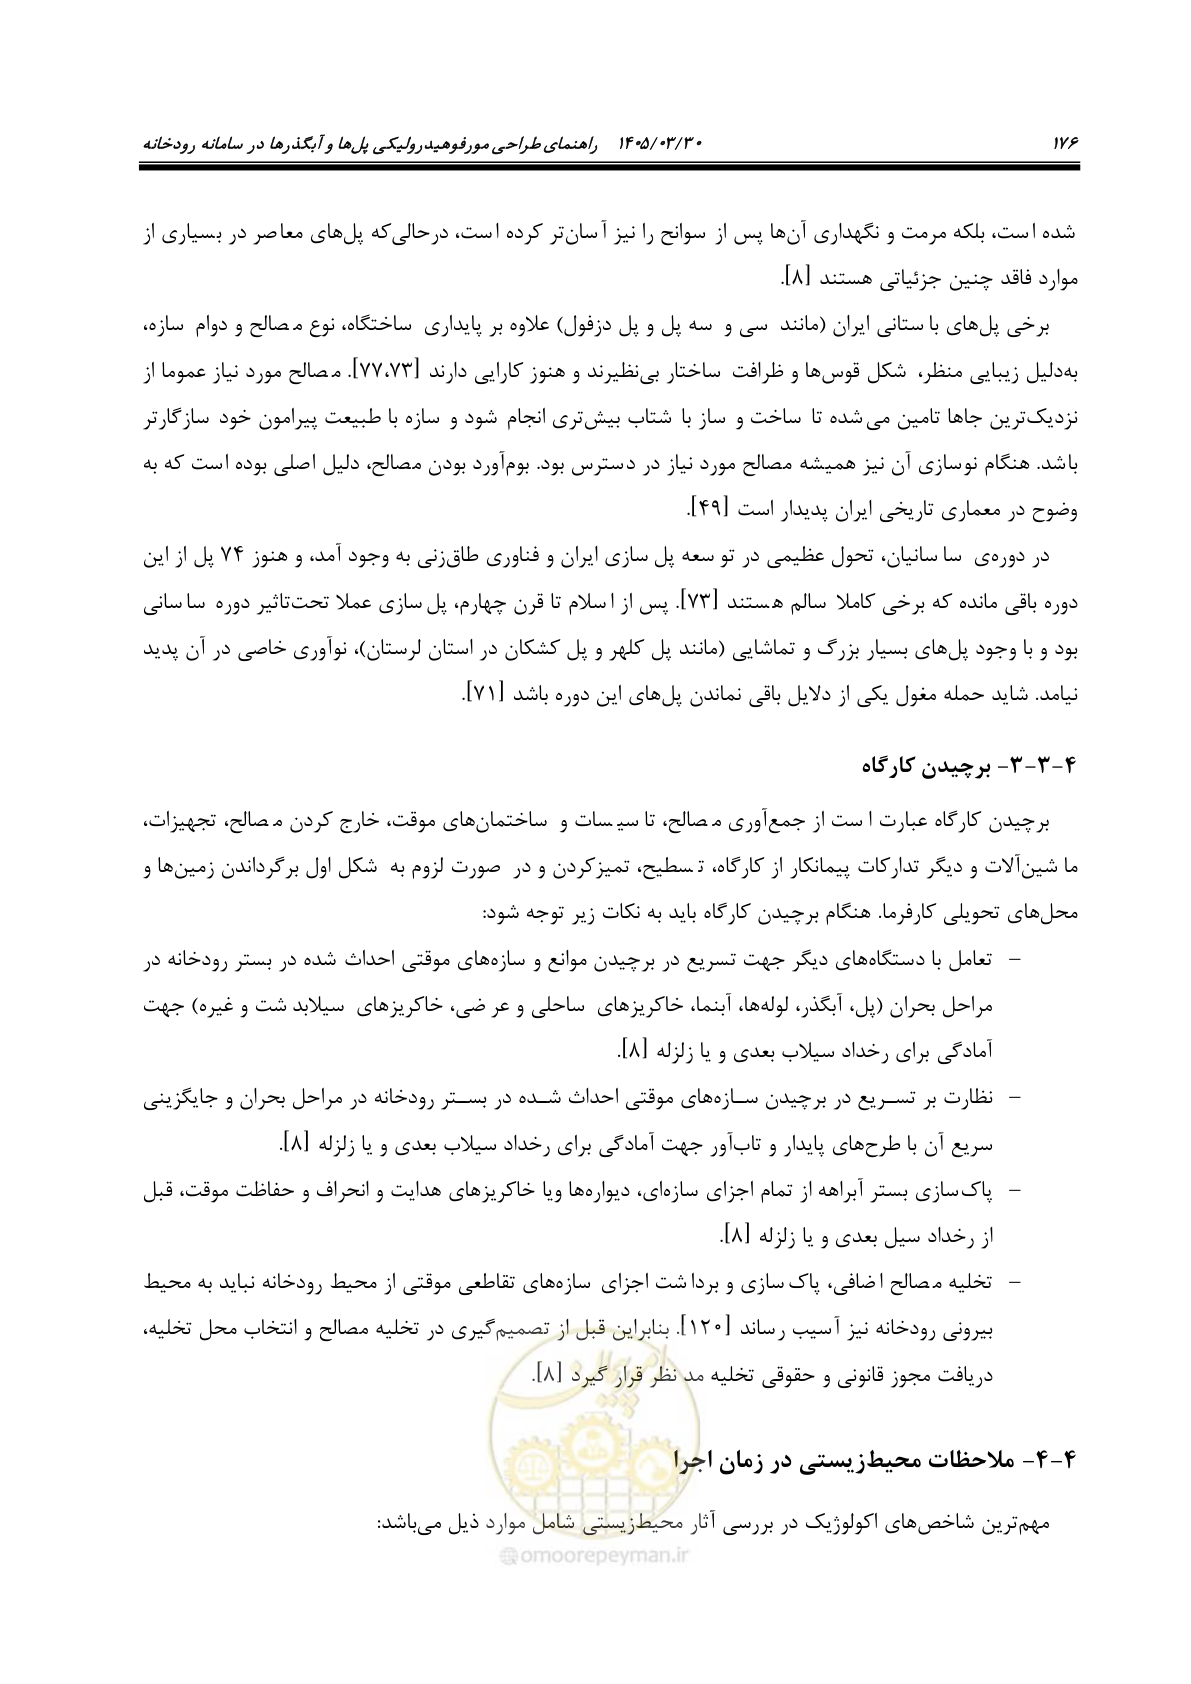 ۱۷۶ ۱۴۰۵/۰۳/۳۰ راهنمای طراحی مورفوهیدرولیکی پل‌ها و آبگذرها در سامانه رودخانه
شده است، بلکه مرمت و نگهداری آن‌ها پس از سوانح را نیز آسان‌تر کرده است، درحالی‌که پل‌های معاصر در بسیاری از
موارد فاقد چنین جزئیاتی هستند [۸].
برخی پل‌های باستانی ایران (مانند سی و سه پل و پل دزفول) علاوه بر پایداری ساختگاه، نوع مصالح و دوام سازه،
به‌دلیل زیبایی منظر، شکل قوس‌ها و ظرافت ساختار بی‌نظیرند و هنوز کارایی دارند [۷۷،۷۳]. مصالح مورد نیاز عموما از
نزدیک‌ترین جاها تامین می‌شده تا ساخت و ساز با شتاب بیش‌تری انجام شود و سازه با طبیعت پیرامون خود سازگارتر
باشد. هنگام نوسازی آن نیز همیشه مصالح مورد نیاز در دسترس بود. بوم‌آورد بودن مصالح، دلیل اصلی بوده است که به
وضوح در معماری تاریخی ایران پدیدار است [۴۹].
در دوره‌ی ساسانیان، تحول عظیمی در توسعه پل سازی ایران و فناوری طاق‌زنی به وجود آمد، و هنوز ۷۴ پل از این
دوره باقی مانده که برخی کاملا سالم هستند [۷۳]. پس از اسلام تا قرن چهارم، پل‌سازی عملا تحت‌تاثیر دوره ساسانی
بود و با وجود پل‌های بسیار بزرگ و تماشایی (مانند پل کلهر و پل کشکان در استان لرستان)، نوآوری خاصی در آن پدید
نیامد. شاید حمله مغول یکی از دلایل باقی نماندن پل‌های این دوره باشد [۷۱].
۴-۳-۳- برچیدن کارگاه
برچیدن کارگاه عبارت است از جمع‌آوری مصالح، تاسیسات و ساختمان‌های موقت، خارج کردن مصالح، تجهیزات،
ماشین‌آلات و دیگر تدارکات پیمانکار از کارگاه، تسطیح، تمیزکردن و در صورت لزوم به شکل اول برگرداندن زمین‌ها و
محل‌های تحویلی کارفرما. هنگام برچیدن کارگاه باید به نکات زیر توجه شود:
– تعامل با دستگاه‌های دیگر جهت تسریع در برچیدن موانع و سازه‌های موقتی احداث شده در بستر رودخانه در
مراحل بحران (پل، آبگذر، لوله‌ها، آبنما، خاکریزهای ساحلی و عرضی، خاکریزهای سیلابدشت و غیره) جهت
آمادگی برای رخداد سیلاب بعدی و یا زلزله [۸].
– نظارت بر تسریع در برچیدن سازه‌های موقتی احداث شده در بستر رودخانه در مراحل بحران و جایگزینی
سریع آن با طرح‌های پایدار و تاب‌آور جهت آمادگی برای رخداد سیلاب بعدی و یا زلزله [۸].
– پاک‌سازی بستر آبراهه از تمام اجزای سازه‌ای، دیواره‌ها ویا خاکریزهای هدایت و انحراف و حفاظت موقت، قبل
از رخداد سیل بعدی و یا زلزله [۸].
– تخلیه مصالح اضافی، پاک سازی و برداشت اجزای سازه‌های تقاطعی موقتی از محیط رودخانه نباید به محیط
بیرونی رودخانه نیز آسیب رساند [۱۲۰]. بنابراین قبل از تصمیم‌گیری در تخلیه مصالح و انتخاب محل تخلیه،
دریافت مجوز قانونی و حقوقی تخلیه مد نظر قرار گیرد [۸].
امور پیمان
۴-۴- ملاحظات محیط‌زیستی در زمان اجرا
مهم‌ترین شاخص‌های اکولوژیک در بررسی آثار محیط‌زیستی شامل موارد ذیل می‌باشد:
@omoorepeyman.ir